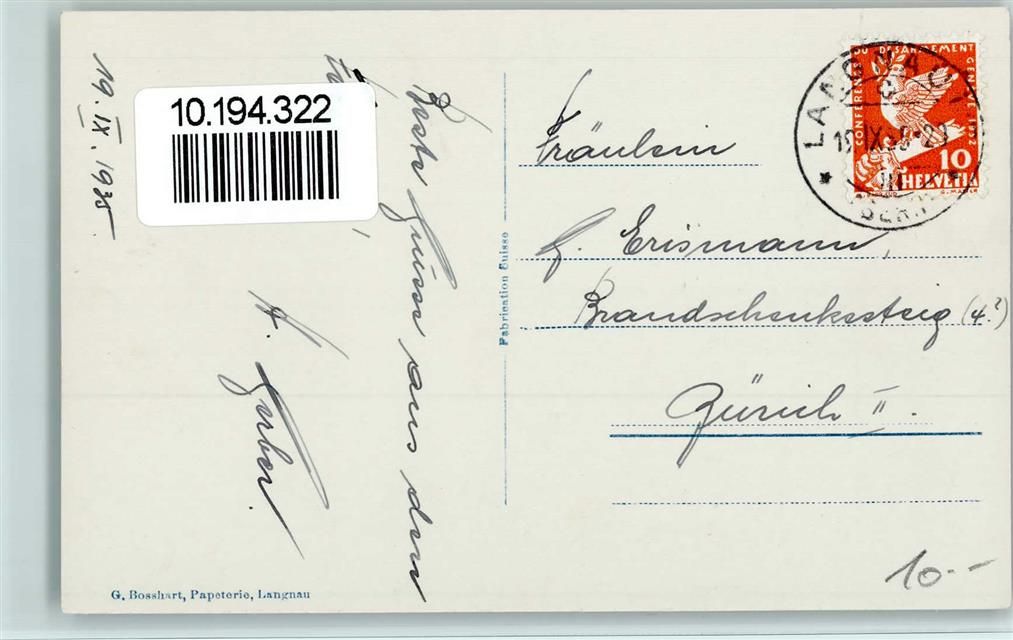 19. IX. 1935.
10.194.322
Beste Grüsse aus dem
A. Gerber.
G. Bosshart, Papeterie, Langnau
Fabrication Suisse
CONFERENCE DU DESARMEMENT GENEVE 1932
10
HELVETIA
LANGNAU
BERN
Fräulein
Erismann,
Brandschenkesteig (4?)
Zürich II.
10.--